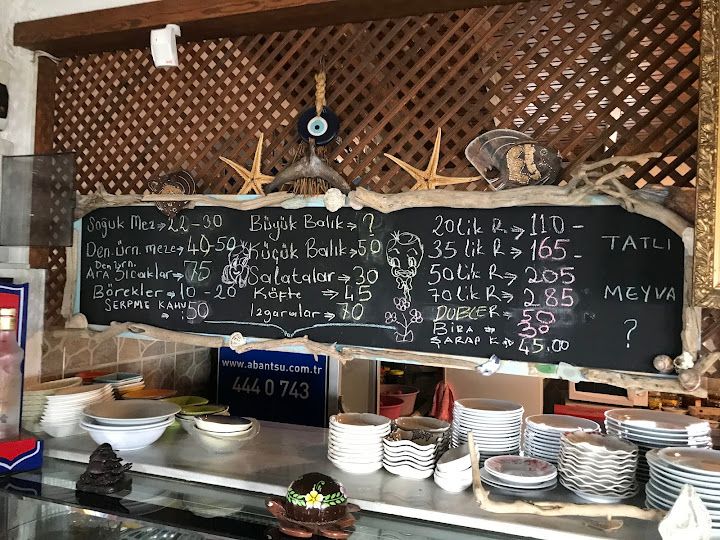 Soğuk Mez→ 22-30
Den. ürn. meze→ 40-50
Den ürn.
Ara Sıcaklar→ 75
Börekler→ 10-20
SERPME KAHV
50
Büyük Balık→ ?
Küçük Balık→ 50
Salatalar→ 30
Köfte→ 45
Izgaralar→ 70
20 lik R→ 110-
35 lik R→ 165-
50 lik R→ 205
70 lik R→ 285
DUBLER→ 50
BİRA→ 30
ŞARAP K→ 45.00
TATLI
MEYVA
?
www.abantsu.com.tr
444 0 743